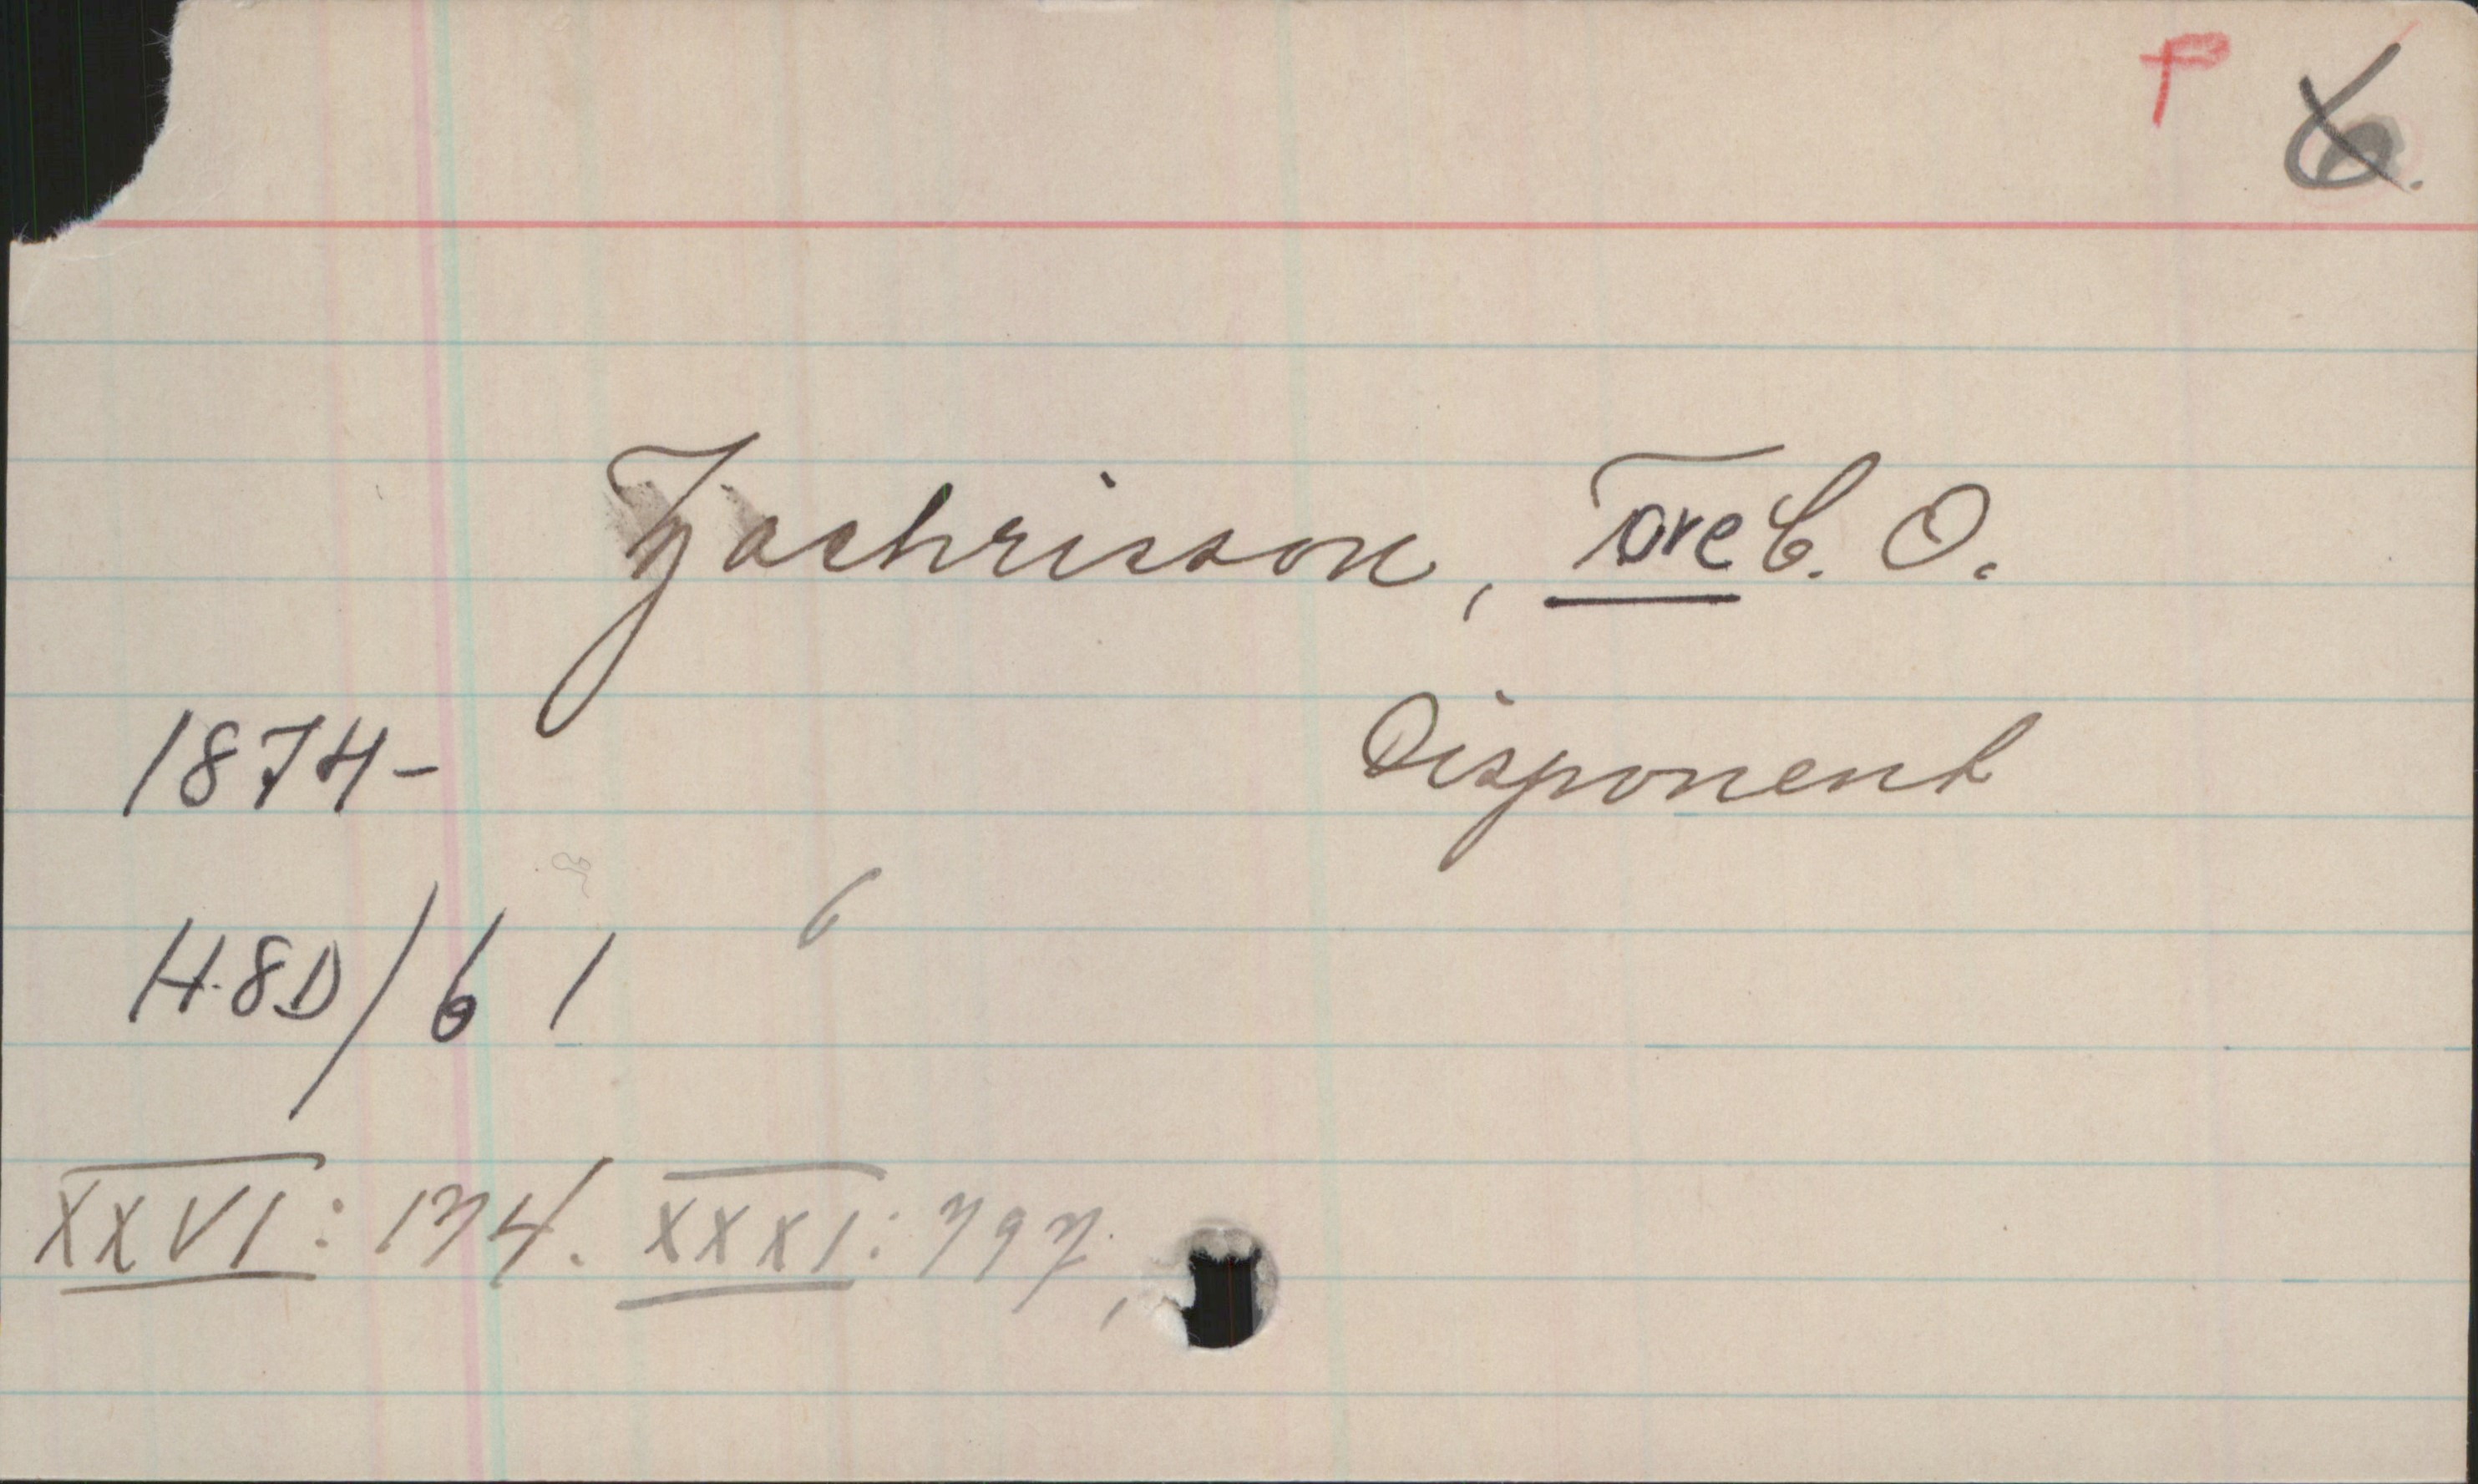 P 6.
Zachrisson, Tore C. O.
1874- Disponent
H.8D/61 6
XXVI: 174. XXXI: 797,